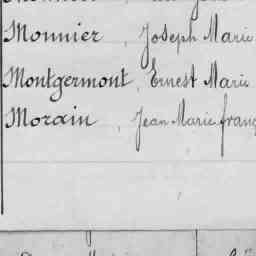 Monnier, Joseph Marie
Montgermont, Ernest Marie
Morain, Jean Marie franç